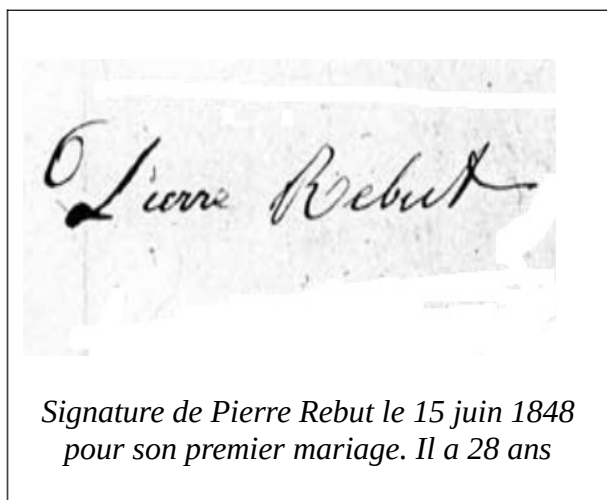 Pierre Rebut
Signature de Pierre Rebut le 15 juin 1848
pour son premier mariage. Il a 28 ans